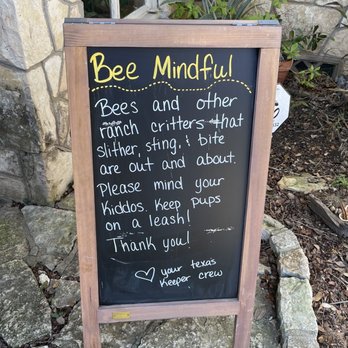 Bee Mindful
Bees and other
ranch critters that
slither, sting, & bite
are out and about.
Please mind your
kiddos. Keep pups
on a leash!
Thank you!
♡ your texas
Keeper crew